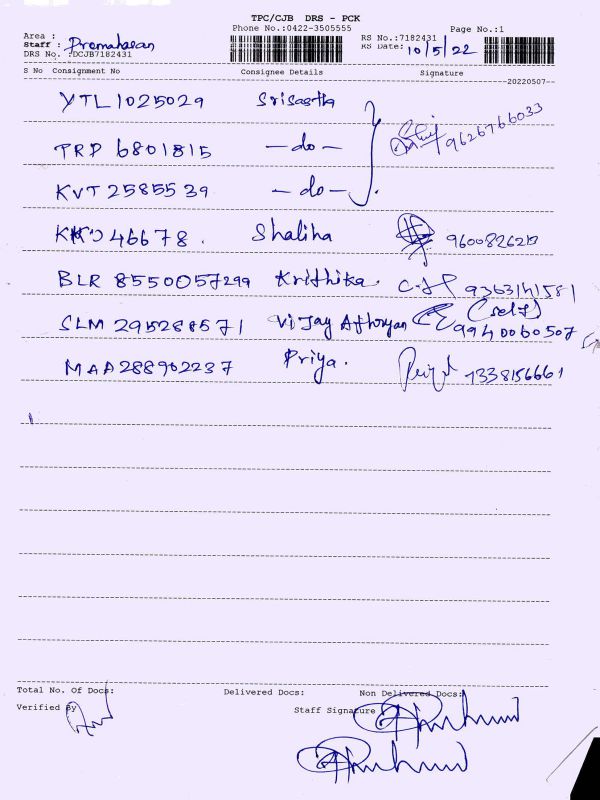 TPC/CJB DRS - PCK
Phone No.:0422-3505555 Page No.:1
Area :
Staff : Premahasan RS No.:7182431
DRS No. :DCJB7182431 RS Date: 10/5/22
S No Consignment No Consignee Details Signature
20220507
YTL 1025029 Srisastha
9626766033
TRP 6801815 -do-
KVT 2585539 -do-
46678. Shaliha
BLR 8550057299 Krithika. 9363141581
(self)
SLM 295288571 Vijay 9940060507
MAA 288902237 Priya. 7338156661
Total No. Of Docs: Delivered Docs: Non Delivered Docs:
Verified By Staff Signature